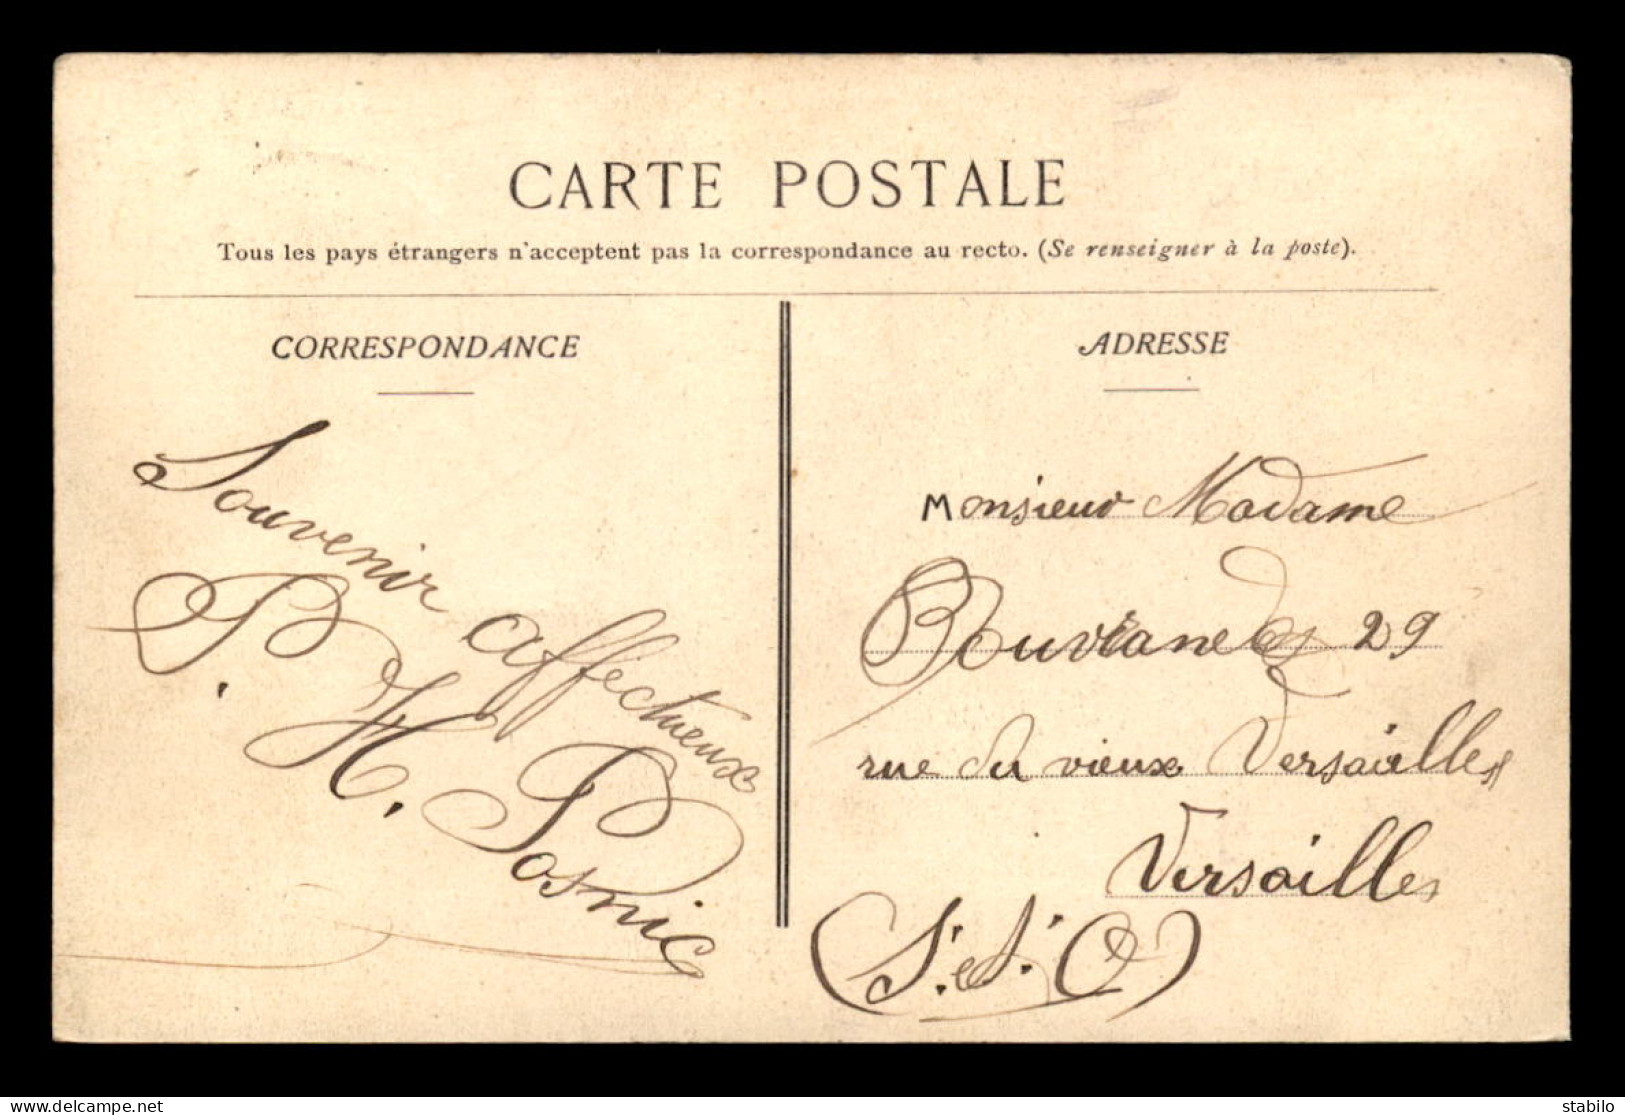 CARTE POSTALE
Tous les pays étrangers n'acceptent pas la correspondance au recto. (Se renseigner à la poste).
CORRESPONDANCE
Souvenir affectueux
P. H. Posnic
ADRESSE
Monsieur Madame
29
rue du vieux Versailles
Versailles
(S. et O)
www.delcampe.net
stabilo